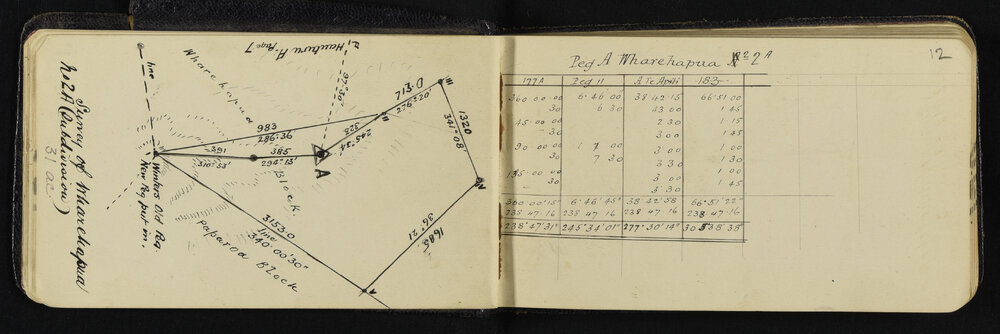 Survey of Wharehapua
No 2A (Subdivision)
31 ac.
line
Winters Old Peg
New Peg put in.
Wharehapua
Block
Hauturu A. Page 7
97°30'
983
286°36'
391
310°53'
385
294°13'
A
328
245°34'
II
713.0
276°20'
III
1320
341°08'
IV
1685
36°21'
V
3153.0
line
340°00'30"
Paparoa Block
12
Peg A Wharehapua No 2A
177A Peg II A Te Apiti 183
360 00 00 6 46 00 38 42 15 66 51 00
30 6 30 43 00 1 45
45 00 00 2 30 1 15
30 3 00 1 45
90 00 00 1 7 00 3 00 1 00
30 7 30 3 30 1 30
135 00 00 3 00 1 00
30 3 30 1 45
360 00 15" 6 46 45" 38 42 58 66 51 22"
238 47 16 238 47 16 238 47 16 238 47 16
238° 47' 31" 245° 34' 01" 277° 30' 14" 305 38 38"